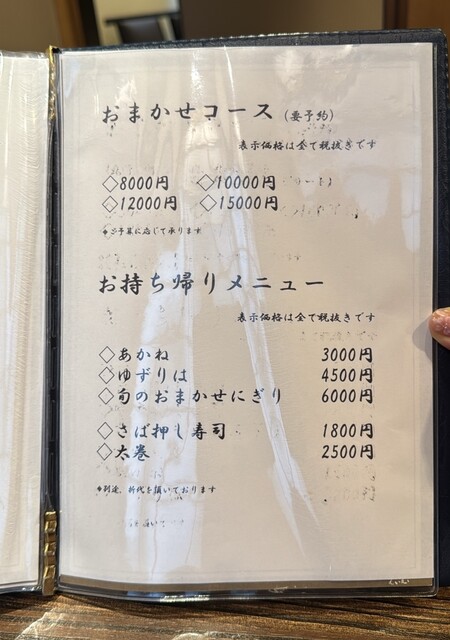 おまかせコース（要予約）
表示価格は全て税抜きです
◇8000円 ◇10000円
◇12000円 ◇15000円
＊ご予算に応じて承ります
お持ち帰りメニュー
表示価格は全て税抜きです
◇あかね 3000円
◇ゆずりは 4500円
◇旬のおまかせにぎり 6000円
◇さば押し寿司 1800円
◇太巻 2500円
＊別途、折代を頂いております